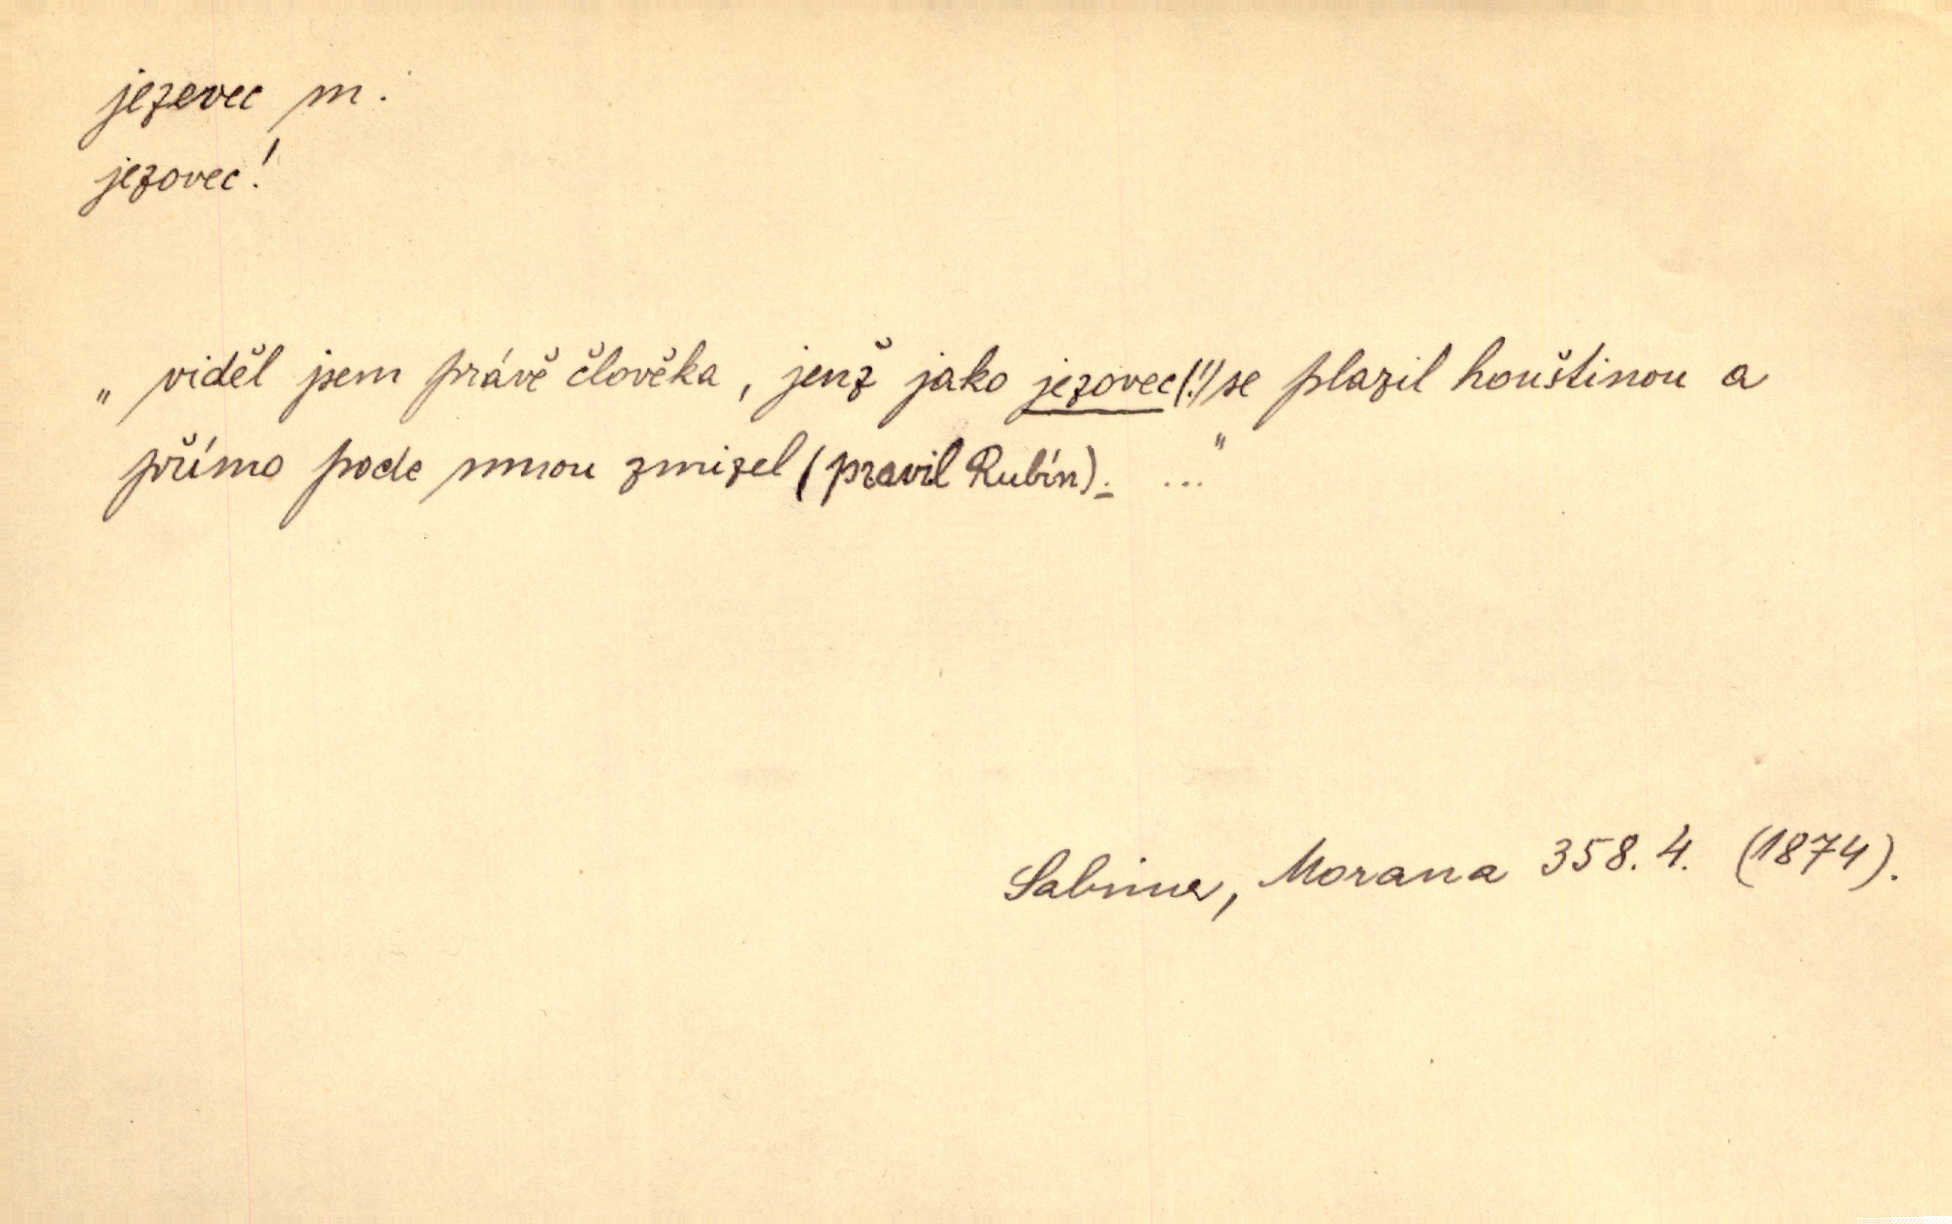 jezevec m.
jezovec!
„viděl jsem právě člověka, jenž jako jezovec(!) se plazil houštinou a
přímo pode mnou zmizel (pravil Rubín). ..."
Sabina, Morana 358.4. (1874).